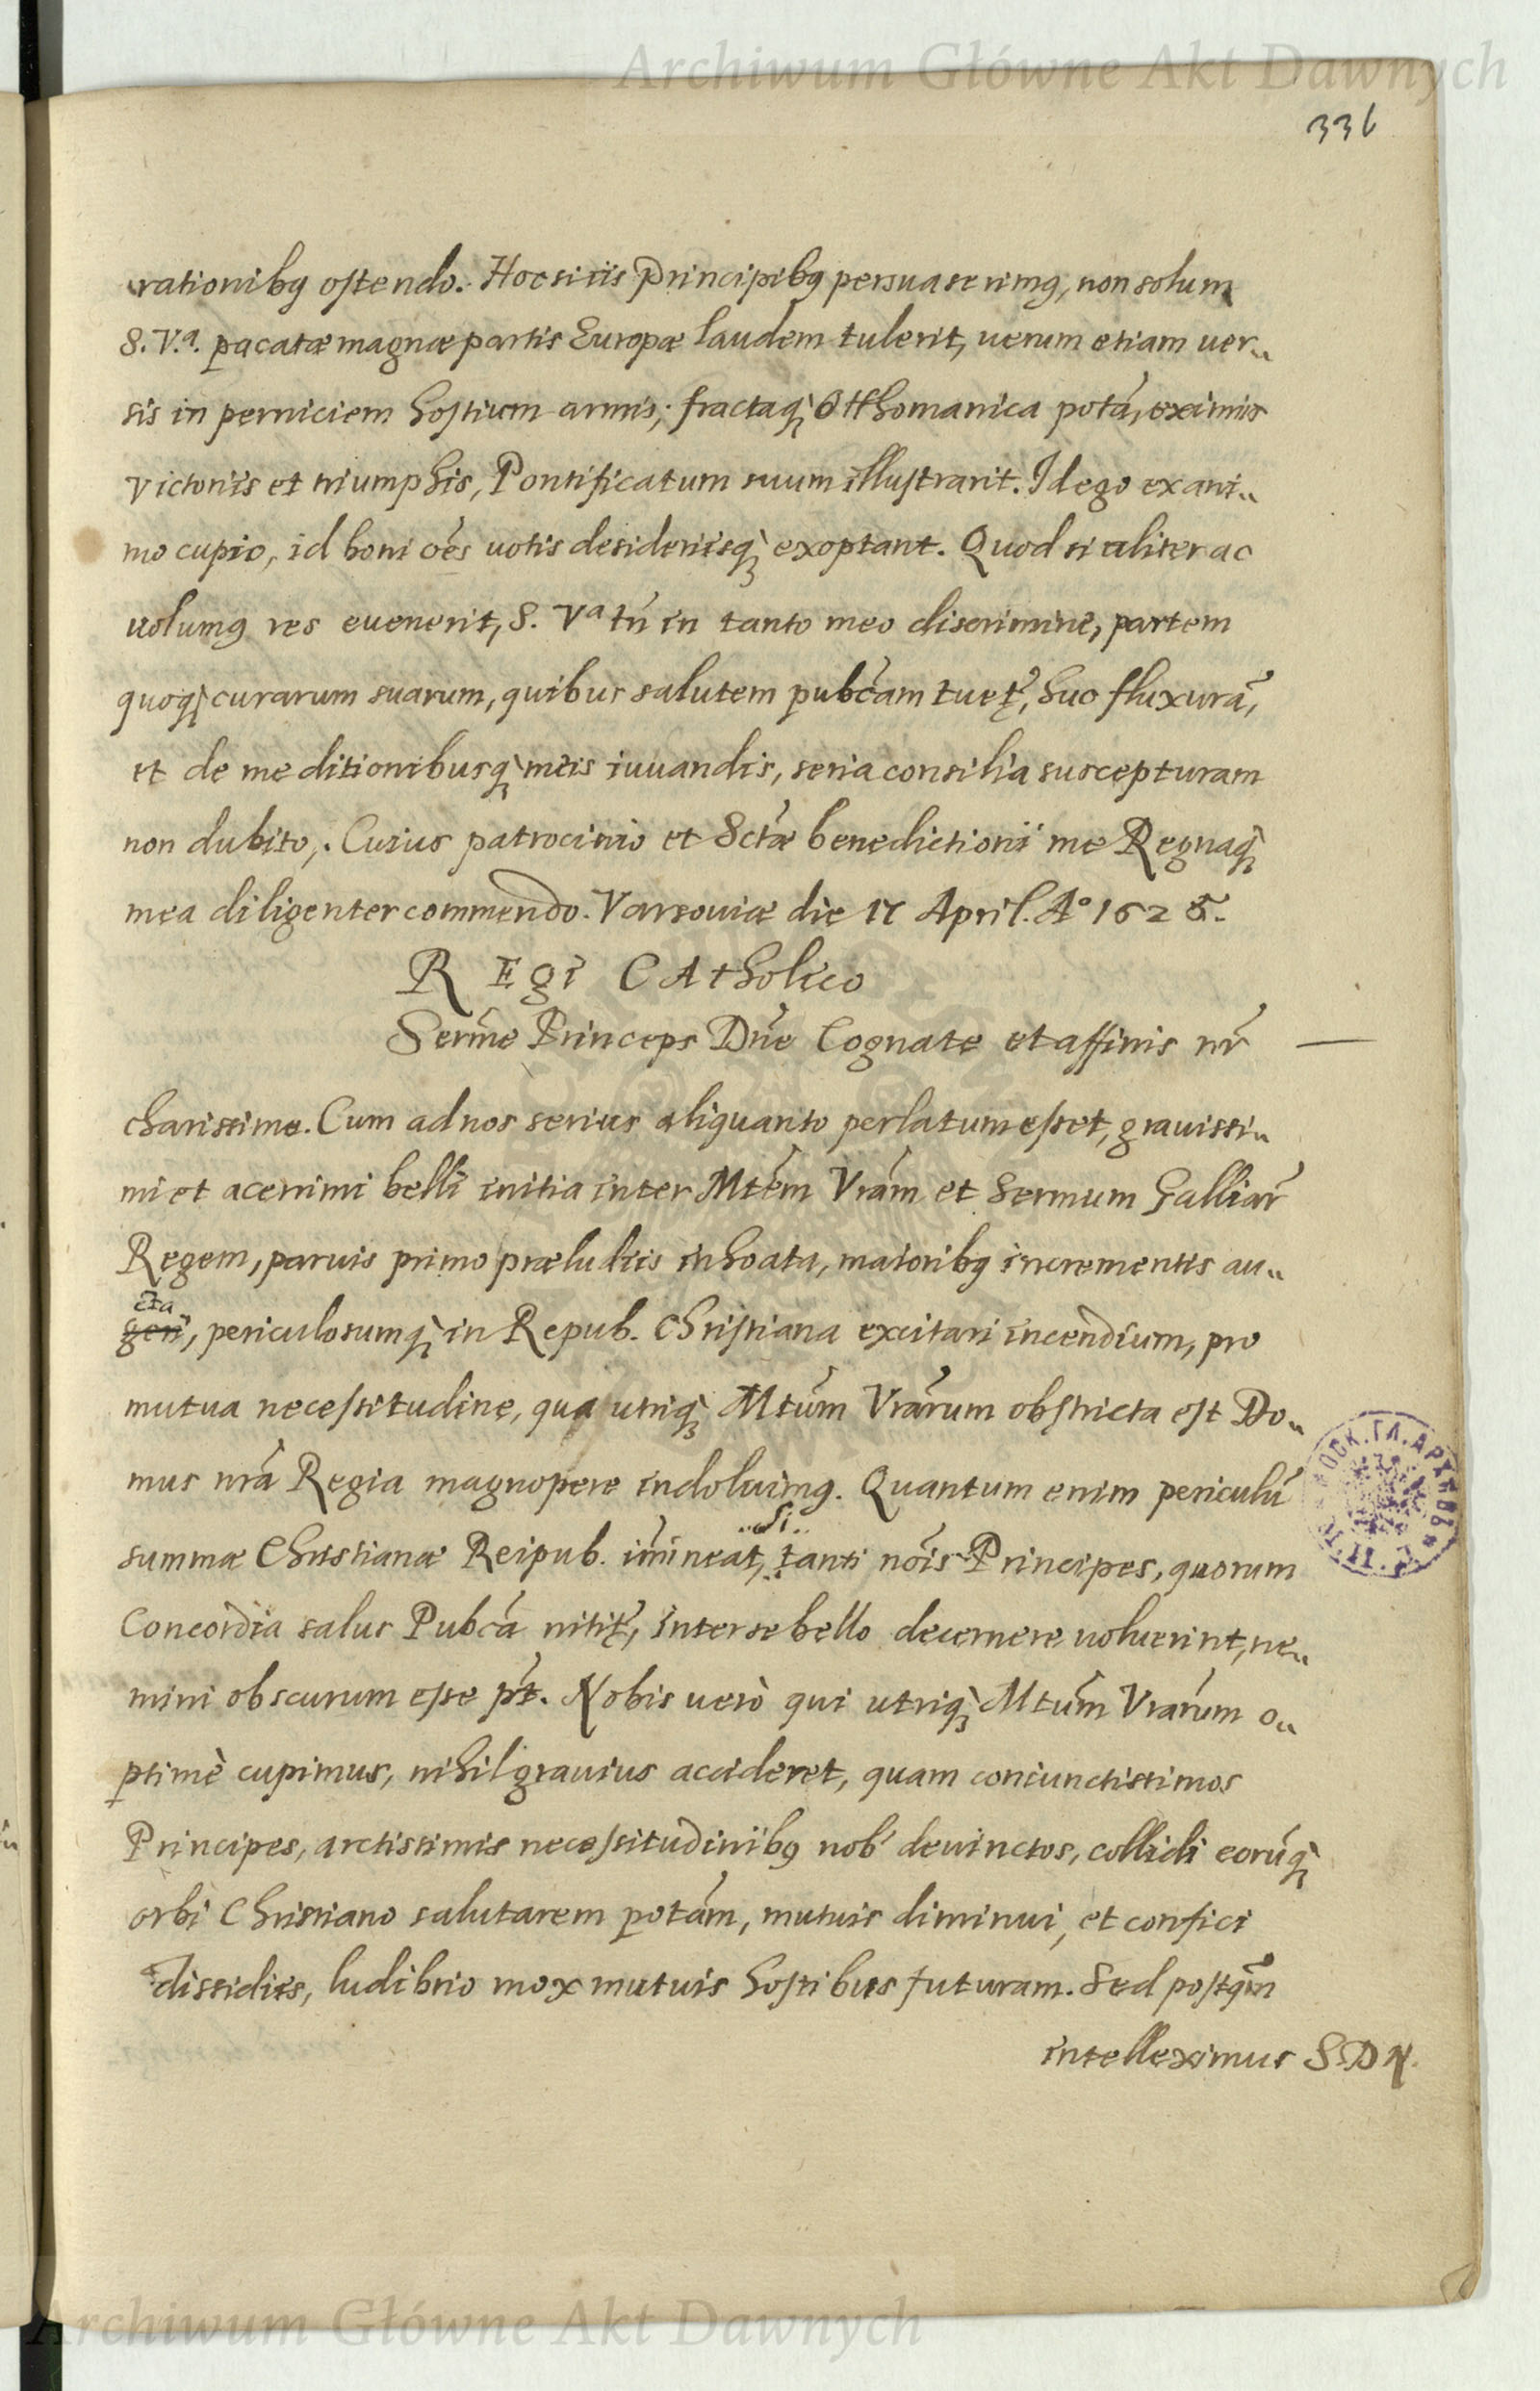 Archiwum Główne Akt Dawnych
336
rationibꝫ ostendo. Hoc si iis Principibꝫ persuaserimꝫ, non solum
S. V.ᵃ. pacatæ magnæ partis Europæ laudem tulerit, uerum etiam uer„
sis in perniciem hostium armis, fractaqꝫ Otthomanica potã, eximiis
victoriis et triumphis, Pontificatum suum illustrarit. Id ego ex ani„
mo cupio, id boni oẽs uotis desideriisqꝫ exoptant. Quod si aliter ac
uolumꝫ res euenerit, S. Vᵃ tñ in tanto meo discrimine, partem
quoqꝫ curarum suarum, quibus salutem pubcãm tuet᷑, huc fluxurã,
et de me ditionibusqꝫ meis iuuandis, seria consilia suscepturam
non dubito,. Cuius patrocinio et Sctæ benedictioni me Regnaqꝫ
mea diligenter commendo. Varsouiæ die 17 April. A° 1625.
REgi CAtholico
Sermẽ Princeps Dñe Cognate et affinis nr̃
charissime. Cum ad nos serius aliquanto perlatum esset, grauissi„
mi et acerrimi belli initia inter Mtẽm Vrãm et Sermum Galliar̃
Regem, paruis primo præludiis inhoata, maioribꝫ incrementis au„
cta
geri, periculosumqꝫ in Repub. Christiana excitari incendium, pro
mutua necessitudine, qua utriqꝫ Mtũm Vrãrum obstricta est Do„
mus nrã Regia magnopere indoluimꝫ. Quantum enim periculũ
si
summæ Christianæ Reipub. im̃ineat, tanti nõis Principes, quorum
Concordia salus Pubcã nitit᷑, inter se bello decernere uoluerint, ne„
mini obscurum esse pt̃. Nobis uerò qui utriqꝫ Mtũm Vrãrum o„
ptimè cupimus, nihil grauius accideret, quam coniunctissimos
Principes, arctissimis necessitudinibꝫ nob̃ deuinctos, collidi eorũqꝫ
orbi Christiano salutarem potãm, mutuis diminui, et confici
dissidiis, ludibrio mox mutuis hostibus futuram. Sed postqm̃
intelleximus S. D N.
Archiwum Główne Akt Dawnych